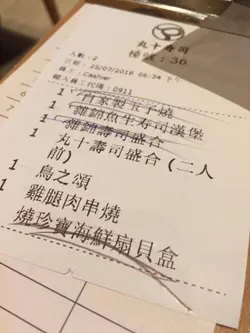 丸十寿司
檯號:36
人數:2
日期: 25/07/2018 06:34 下午
員工:Cashier
輸入員工代碼:0911
1 自家製玉子燒
1 雜錦魚生寿司漢堡
1 雜錦壽司盛合
1 丸十壽司盛合(二人
前)
1 鳥之頌
1 雞腿肉串燒
1 燒珍寶海鮮扇貝盒